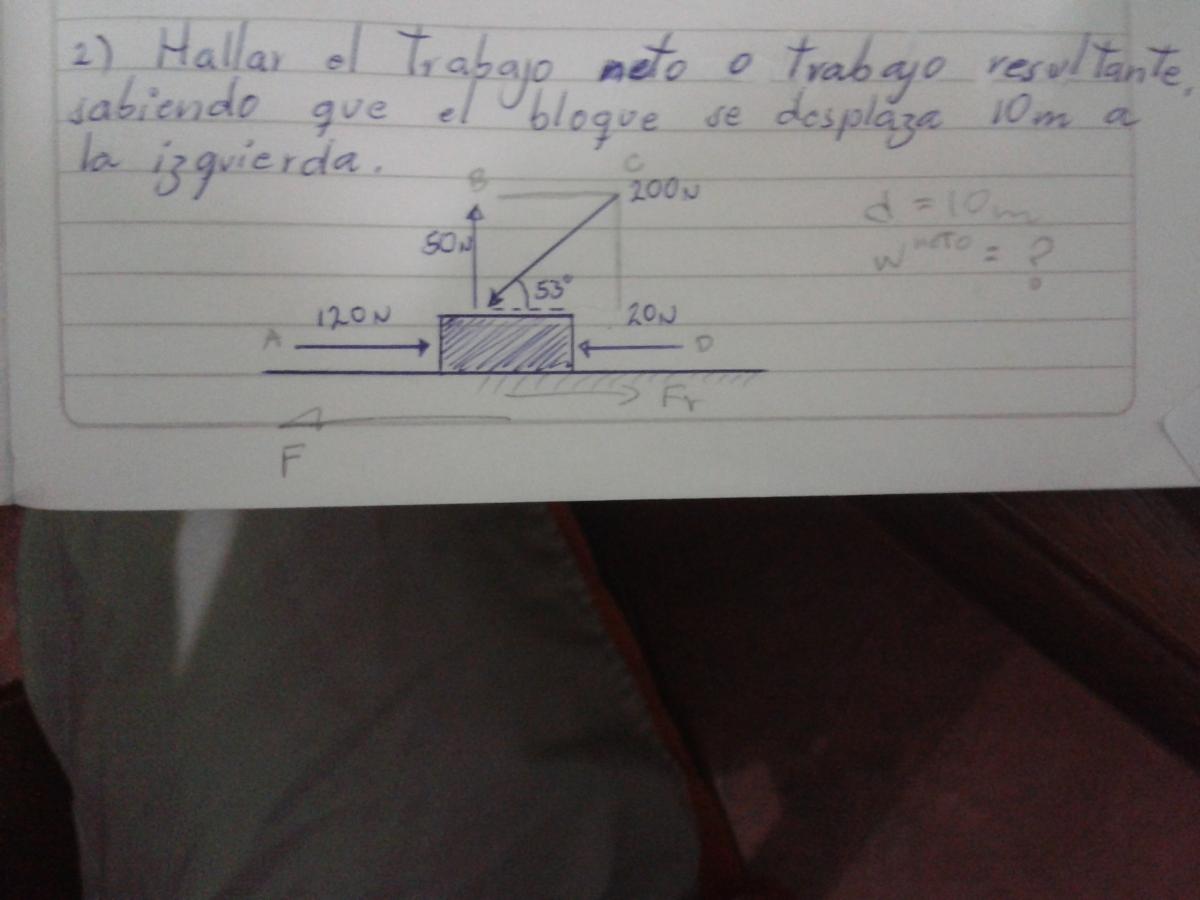 2) Hallar el Trabajo neto o trabajo resultante,
sabiendo que el bloque se desplaza 10m a
la izquierda.
B
C
200N
d = 10m
50N
W neto = ?
53°
120N
20N
A
D
Fr
F